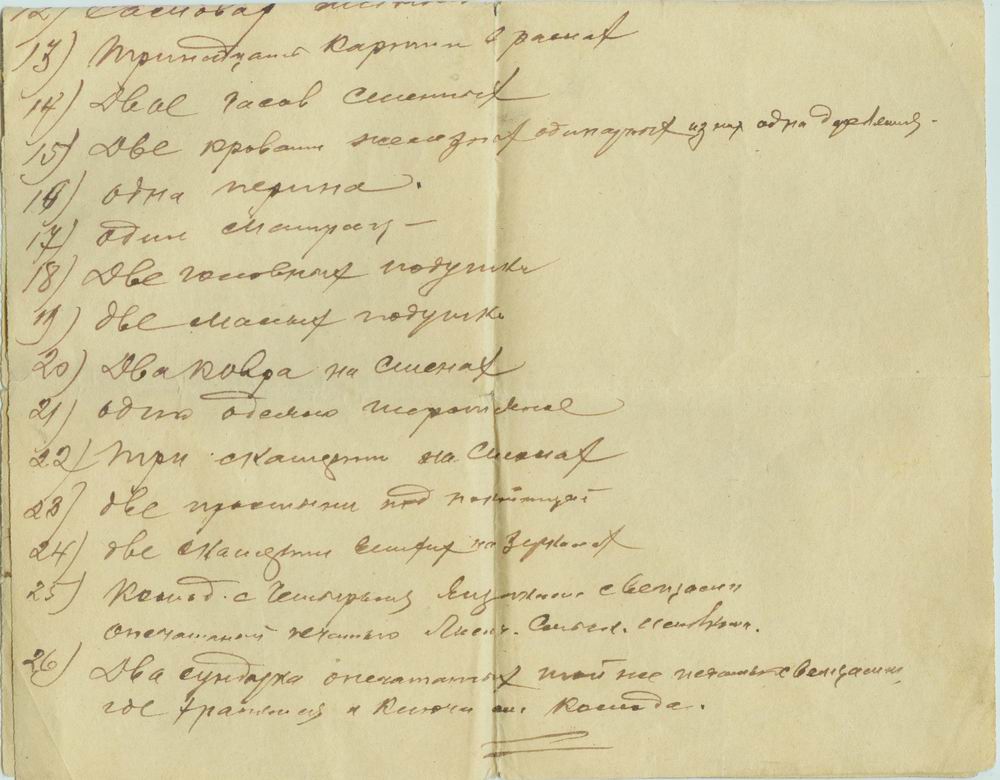 12) Самовар
13) Тринадцать картин в рамах
14) Двое часов стенных
15) Две кровати железных одинарных из них одна
16) одна перина.
17) один матрац —
18) Две головных подушки
19) две малых подушки
20) Два ковра на стенах
21) одно одеяло шерстяное
22) Три скатерти на столах
23) две простыни под покойницей
24) две скатерти на зеркалах
25) Комод с Четырьмя Ящиками с вещами
опечатанный печатью
26) Два сундука опечатанных той же печатью с вещами,
где хранятся и Ключи от Комода.